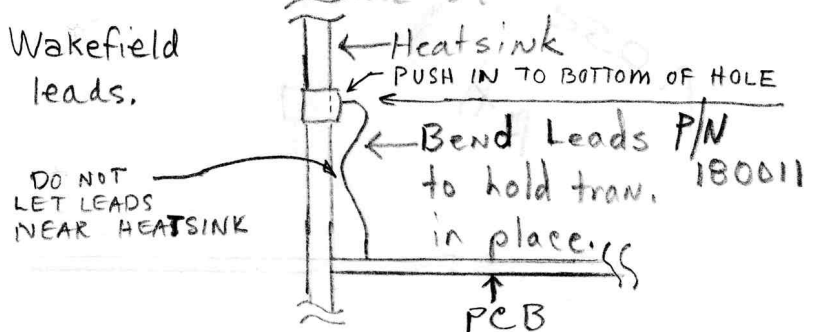 Wakefield
leads.
Heatsink
PUSH IN TO BOTTOM OF HOLE
Bend Leads
to hold tran.
in place.
P/N
180011
DO NOT
LET LEADS
NEAR HEATSINK
PCB